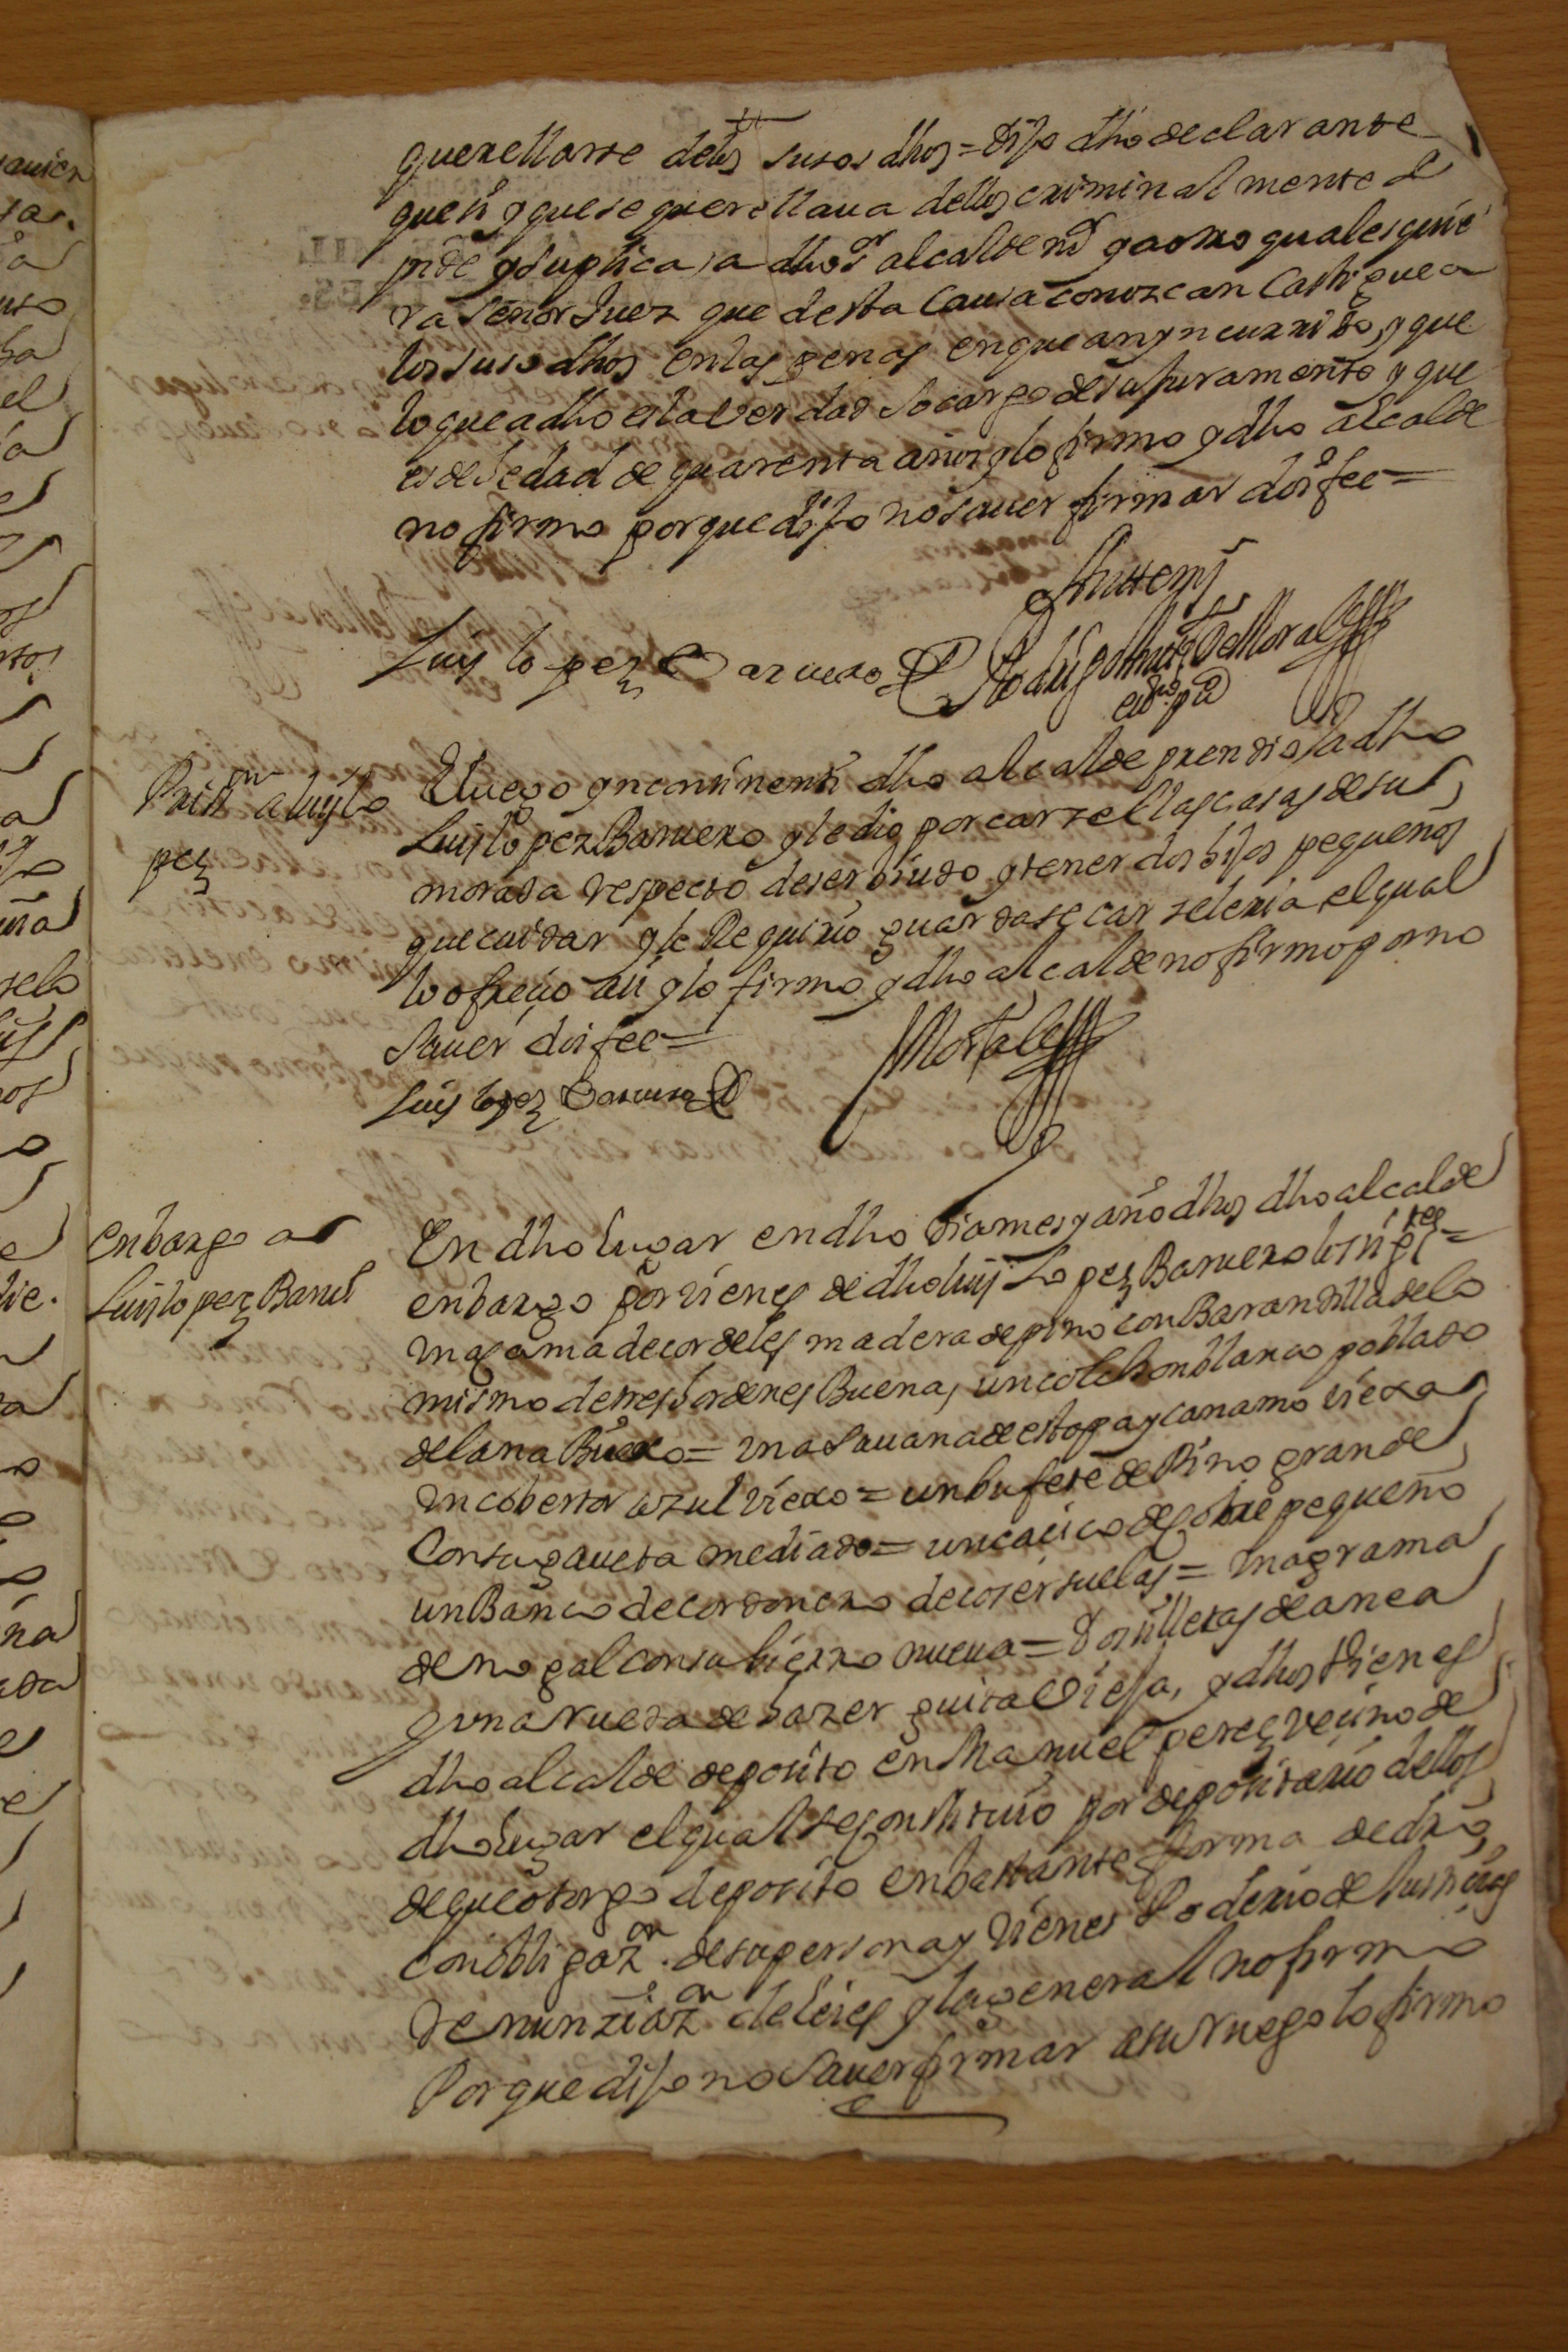 querellarse delos susos dhos = dijo dho declarante
que si y que se querellava dellos criminalmente e
pide y suplica a dho sr alcalde y a otro qualesquie
ra señor Juez que desta causa conozcan castigue a
los susodhos en las penas en que an yncurrido, y que
lo que a dho es la verdad so cargo de su juramento y que
es de hedad de quarenta años y lo firmo y dho alcalde
no firmo porque dijo no saver firmar doi fee =
Antemy
Luis lopez Baruero
Rodrigo Muñoz de Morales
essno ppco
Prisson a luis lo
pez
E luego yncontinenti dho alcalde prendio a dho
Luis lopez Baruero y le dio por carzel las casas de su
morada respecto de ser biudo y tener dos hijos pequeños
que cuidar y le Requirio guardase carzeleria, el qual
lo ofrecio assi y lo firmo y dho alcalde no firmo por no
saver doi fee =
Luis lopez Baruero
Morales
enbargo a
Luis lopez Baruo
En dho lugar en dho dia mes y año dhos dho alcalde
enbargo por vienes de dho luis Lopez Baruero los sigtes =
una cama de cordeles madera de pino con Barandilla de lo
mismo de tres hordenes Buena, un colchon blanco poblado
de lana Bueno = una savana de estopa y cañamo viexa
un cobertor azul viexo = un bufete de Pino grande
Con su gaveta mediado = un cacico de cobre pequeño
un Banco de cordonero de coser suelas = una grama
de nogal con su hierro nueva = Dos silletas de anea
y una rueda de hazer guita Vieja, y dhos Vienes
dho alcalde deposito en Manuel perez vecino de
dho lugar el qual se constituio por depositario dellos
de que otorgo deposito en bastante forma de dro
con obligazon de su persona y vienes Poderio de Justicias
Renunziazon de leies y la general no firmo
Porque dijo no saver firmar a su ruego lo firmo